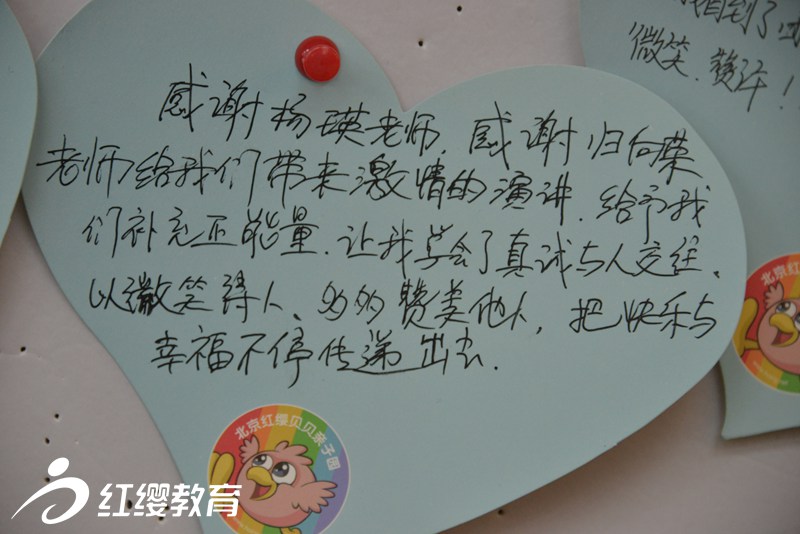 感谢杨瑛老师.感谢归向荣
老师给我们带来激情的演讲.给予我
们补充正能量.让我学会了真诚与人交往、
以微笑待人、多多赞美他人,把快乐与
幸福不停传递出去.
到了
微笑.赞许!
北京红缨贝贝亲子园
北京红缨
红缨教育